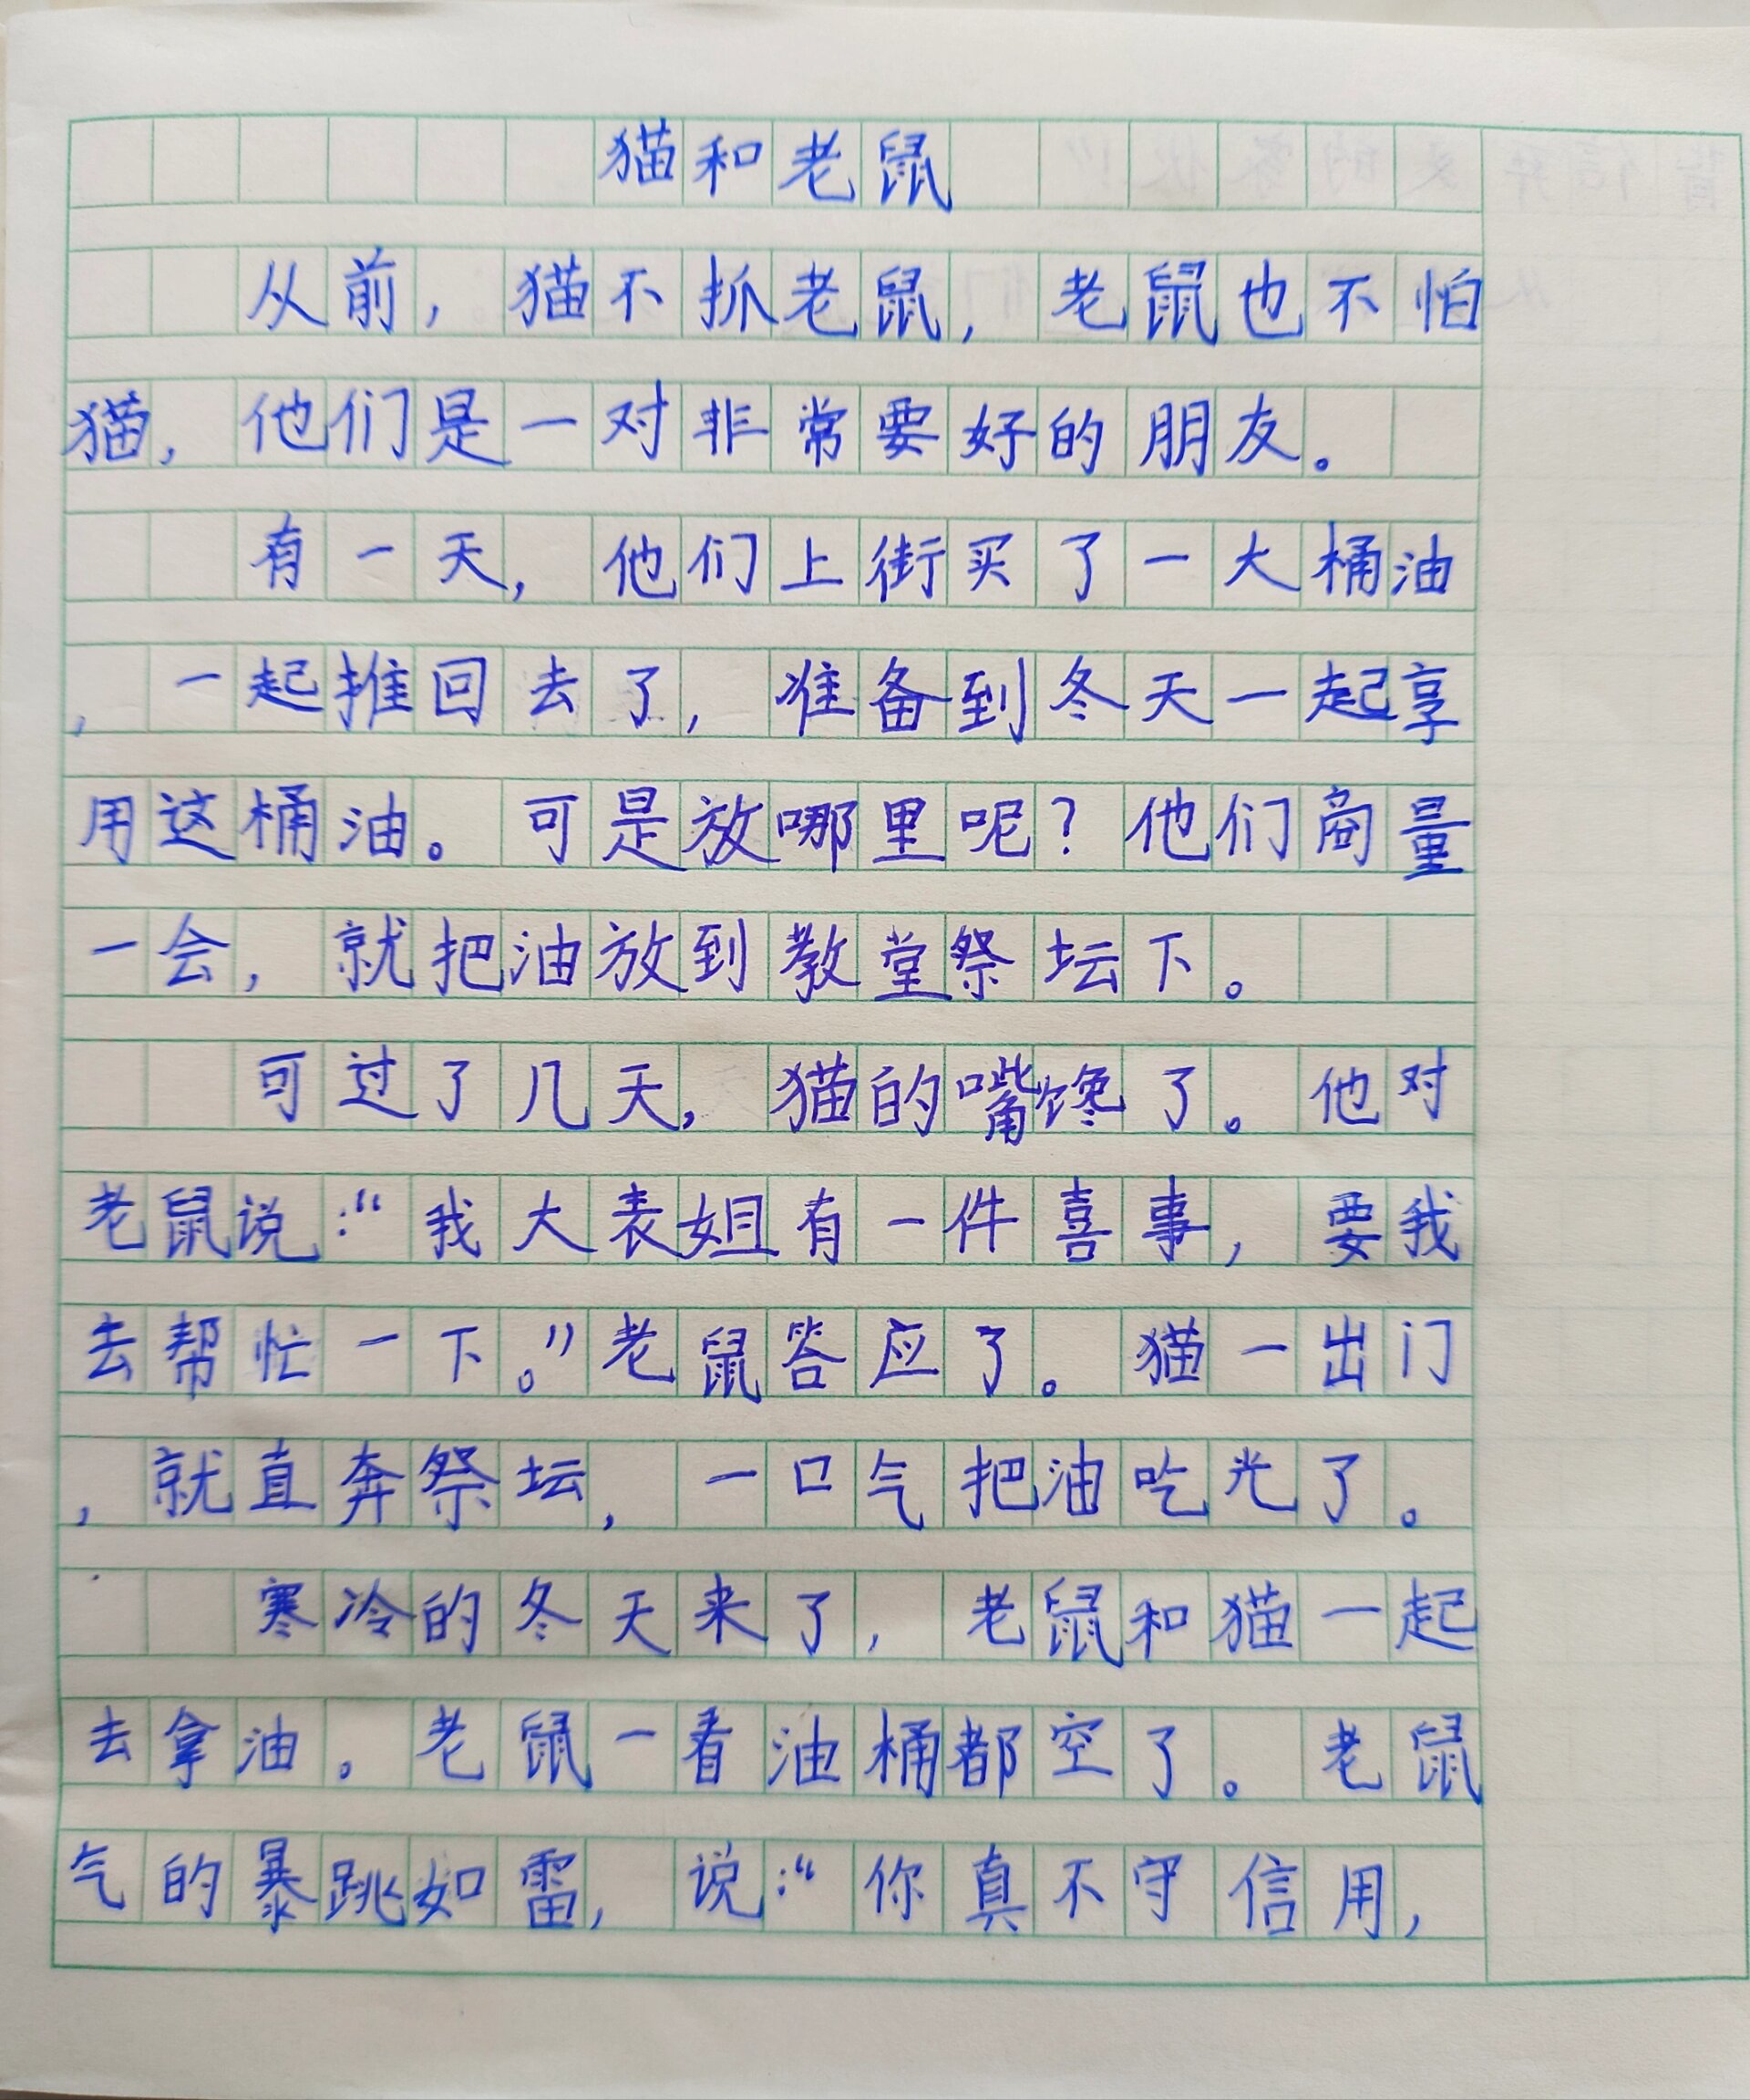 猫和老鼠
从前，猫不抓老鼠，老鼠也不怕
猫，他们是一对非常要好的朋友。
有一天，他们上街买了一大桶油
，一起推回去了，准备到冬天一起享
用这桶油。可是放哪里呢？他们商量
一会，就把油放到教堂祭坛下。
可过了几天，猫的嘴馋了。他对
老鼠说：“我大表姐有一件喜事，要我
去帮忙一下。”老鼠答应了。猫一出门
，就直奔祭坛，一口气把油吃光了。
寒冷的冬天来了，老鼠和猫一起
去拿油。老鼠一看油桶都空了。老鼠
气的暴跳如雷，说：“你真不守信用，